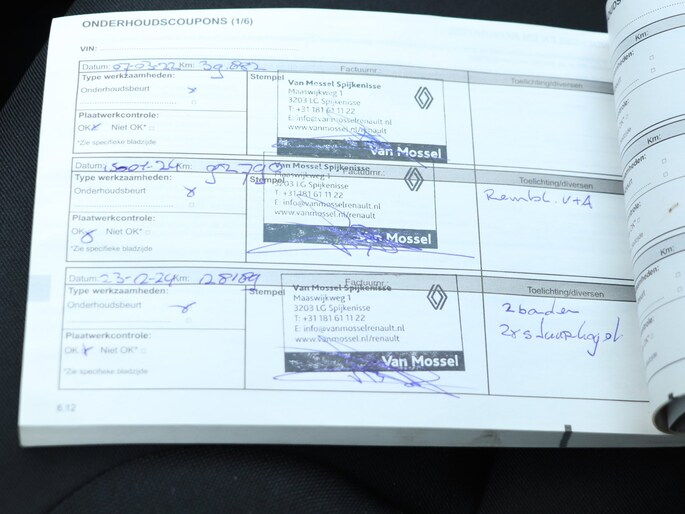 ONDERHOUDSCOUPONS (1/6)
VIN:
Datum: 07-03-22 Km: 39.882 Factuurnr.: Toelichting/diversen
Type werkzaamheden: Stempel
Onderhoudsbeurt x
Plaatwerkcontrole:
OK x Niet OK*
*Zie specifieke bladzijde
Van Mossel Spijkenisse
Maaswijkweg 1
3203 LG Spijkenisse
T: +31 181 61 11 22
E: info@vanmosselrenault.nl
www.vanmossel.nl/renault
Van Mossel
Datum: 01-24 Km: Factuurnr.: Toelichting/diversen
Type werkzaamheden: Stempel
Onderhoudsbeurt x
Plaatwerkcontrole:
OK x Niet OK*
*Zie specifieke bladzijde
Van Mossel Spijkenisse
Maaswijkweg 1
3203 LG Spijkenisse
T: +31 181 61 11 22
E: info@vanmosselrenault.nl
www.vanmossel.nl/renault
Van Mossel
Rembl. V+A
Datum: 23-12-24 Km: 128189 Factuurnr.: Toelichting/diversen
Type werkzaamheden: Stempel
Onderhoudsbeurt x
Plaatwerkcontrole:
OK x Niet OK*
*Zie specifieke bladzijde
Van Mossel Spijkenisse
Maaswijkweg 1
3203 LG Spijkenisse
T: +31 181 61 11 22
E: info@vanmosselrenault.nl
www.vanmossel.nl/renault
Van Mossel
2 banden
6.12
Km:
Km:
Km: